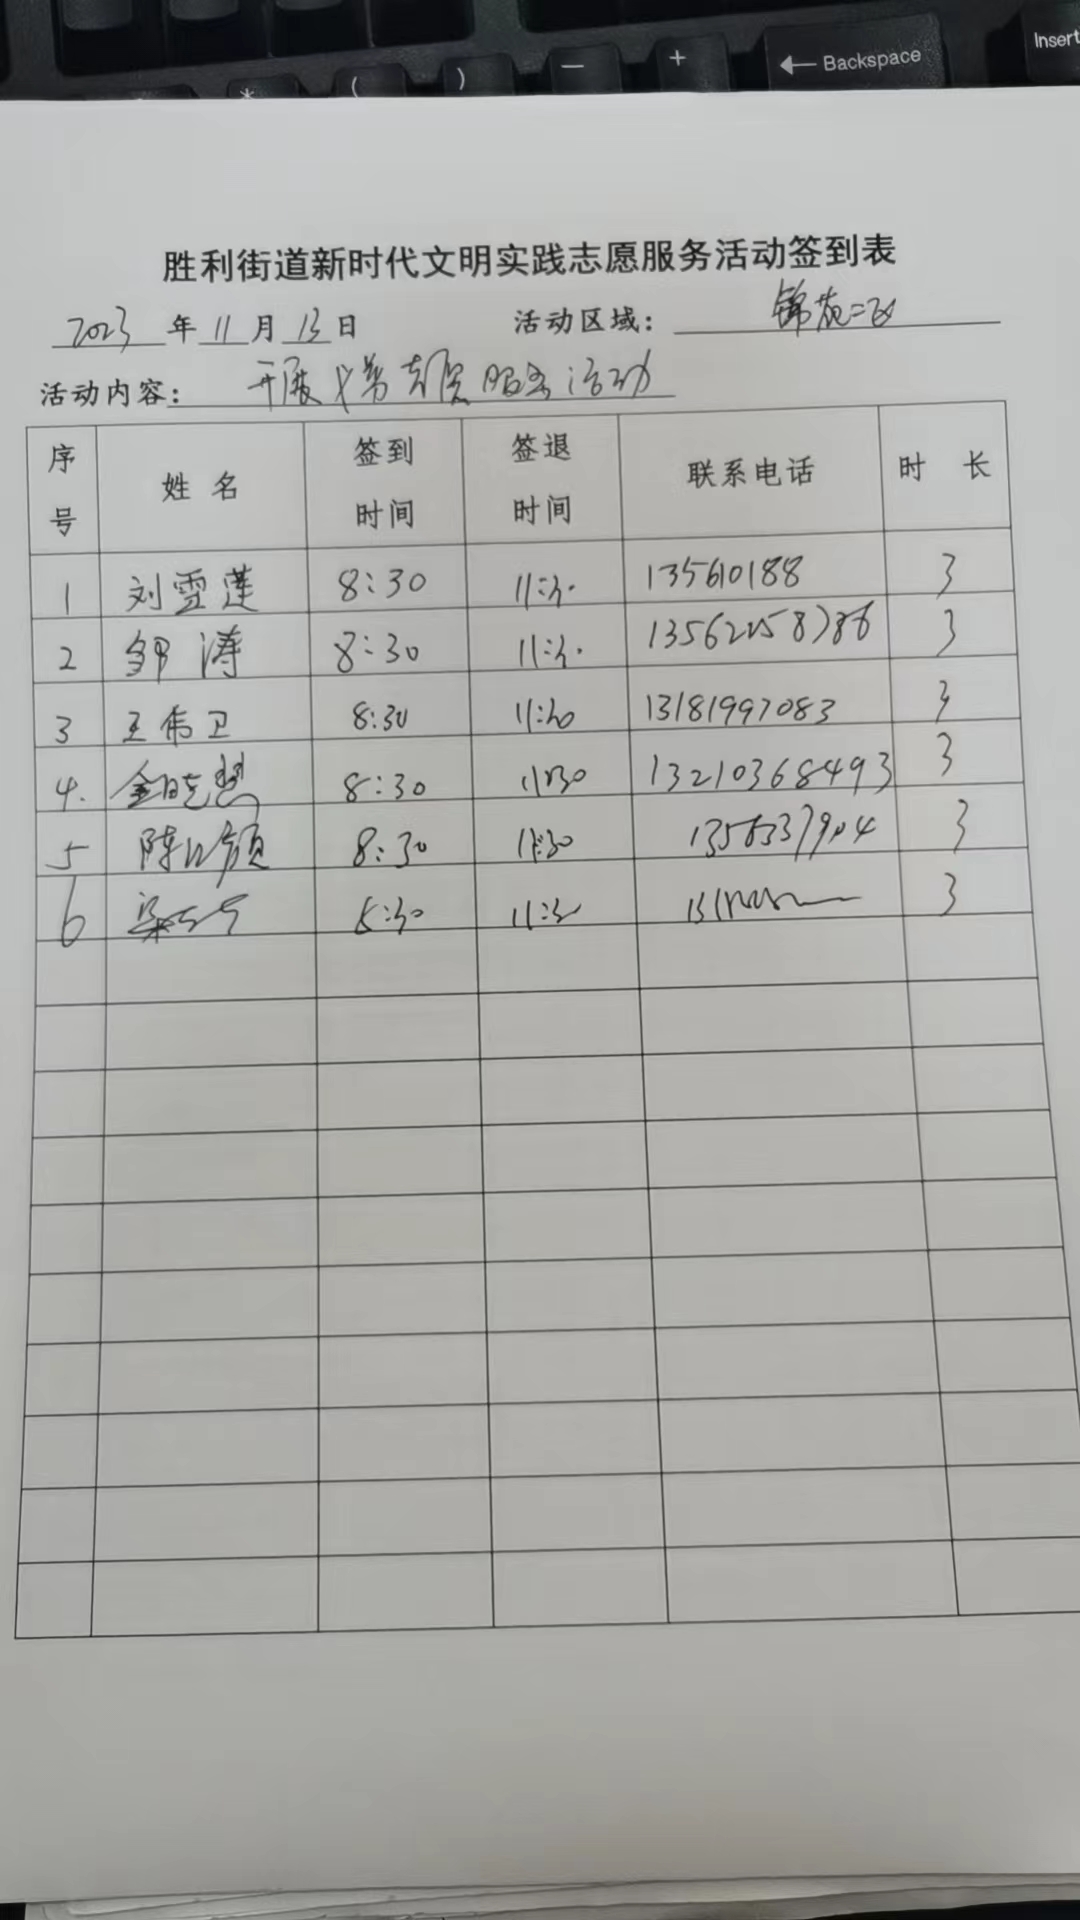 * ( ) — + ← Backspace Insert
胜利街道新时代文明实践志愿服务活动签到表
2023 年 11 月 13 日 活动区域： 锦苑二区
活动内容： 开展 志愿服务活动
序号 姓名 签到时间 签退时间 联系电话 时长
1 刘雪莲 8:30 11:30 135610188 3
2 邹涛 8:30 11:30 3
3 王伟卫 8:30 11:30 13181997083 3
4. 金晓慧 8:30 11:30 13210368493 3
5 陈 8:30 11:30 3
6 梁 8:30 11:30 3